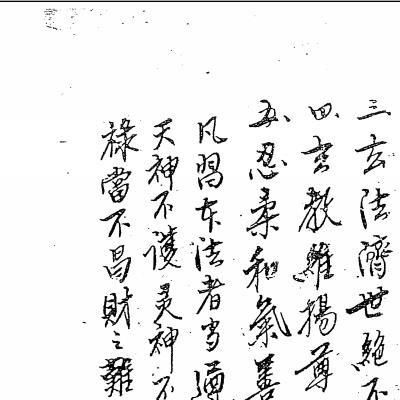 三玄法濟世絕不
四、玄教維揚尊
五、忍柔和氣善
凡習本法者当遵
天神不護灵神不
祿當不昌財之難